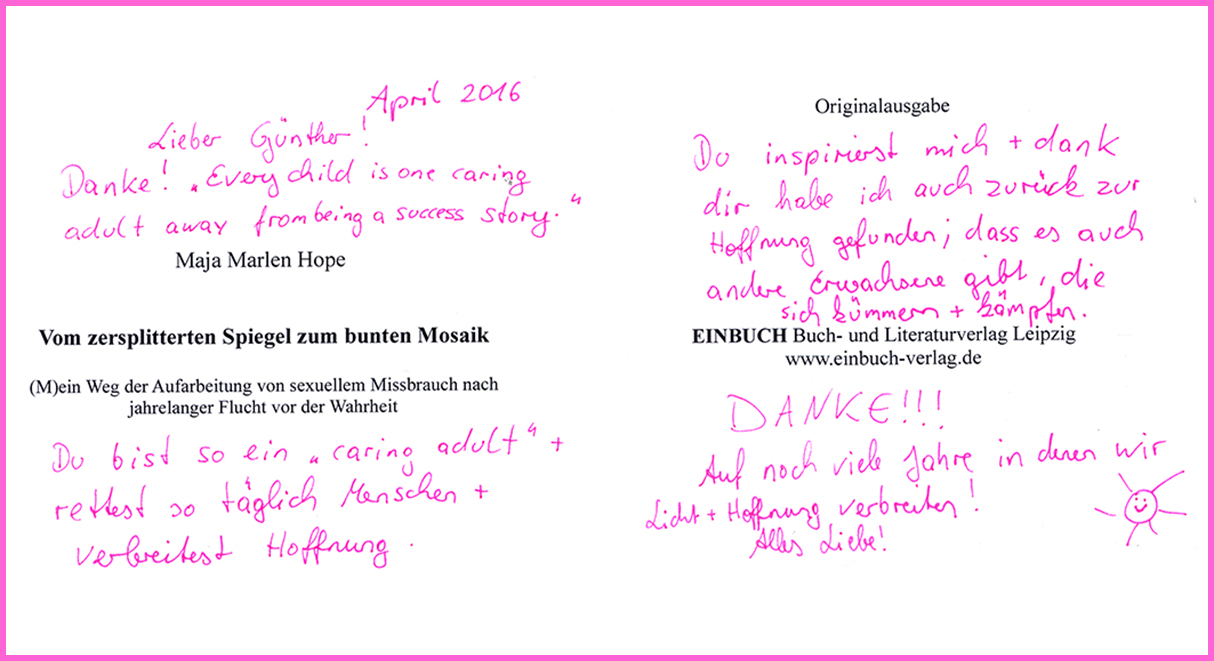 April 2016
Lieber Günther!
Danke! „Every child is one caring
adult away from being a success story."
Maja Marlen Hope
Vom zersplitterten Spiegel zum bunten Mosaik
(M)ein Weg der Aufarbeitung von sexuellem Missbrauch nach
jahrelanger Flucht vor der Wahrheit
Du bist so ein „caring adult" +
rettest so täglich Menschen +
verbreitest Hoffnung.
Originalausgabe
Du inspirierst mich + dank
dir habe ich auch zurück zur
Hoffnung gefunden; dass es auch
andere Erwachsene gibt, die
sich kümmern + kämpfen.
EINBUCH Buch- und Literaturverlag Leipzig
www.einbuch-verlag.de
DANKE!!!
Auf noch viele Jahre in denen wir
Licht + Hoffnung verbreiten!
Alles Liebe!